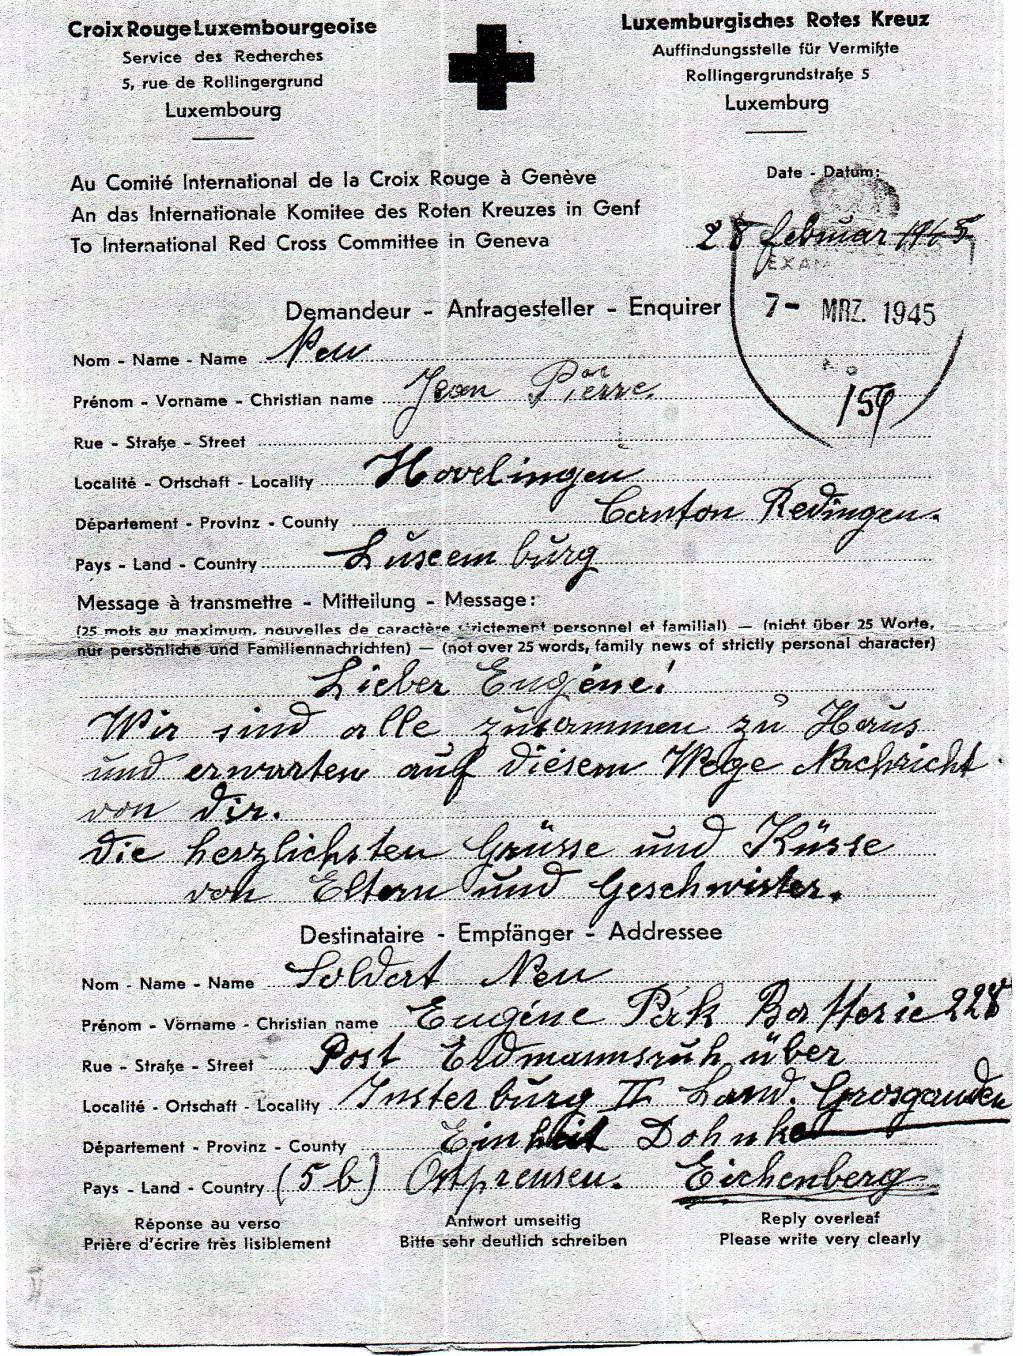 Croix Rouge Luxembourgeoise
Service des Recherches
5, rue de Rollingergrund
Luxembourg
Luxemburgisches Rotes Kreuz
Auffindungsstelle für Vermißte
Rollingergrundstraße 5
Luxemburg
Au Comité International de la Croix Rouge à Genève
An das Internationale Komitee des Roten Kreuzes in Genf
To International Red Cross Committee in Geneva
Date - Datum:
28 februar 1945
EXAM
7- MRZ. 1945
Demandeur - Anfragesteller - Enquirer
Nom - Name - Name Neu
Prénom - Vorname - Christian name Jean Pierre
Rue - Straße - Street
Localité - Ortschaft - Locality Hovelingen
Département - Provinz - County Canton Redingen.
Pays - Land - Country Luxemburg
Message à transmettre - Mitteilung - Message:
(25 mots au maximum, nouvelles de caractère strictement personnel et familial) — (nicht über 25 Worte,
nur persönliche und Familiennachrichten) — (not over 25 words, family news of strictly personal character)
Lieber Eugéne!
Wir sind alle zusammen zu Haus
und erwarten auf diesem Wege Nachricht
von dir.
die herzlichsten Grüsse und Küsse
von Eltern und Geschwister.
Destinataire - Empfänger - Addressee
Nom - Name - Name Soldat Neu
Prénom - Vorname - Christian name Eugéne Park Batterie 228
Rue - Straße - Street Post Erdmannsruh über
Localité - Ortschaft - Locality Insterburg II Land.
Département - Provinz - County Einheit Dohnke
Pays - Land - Country (5 b) Ostpreusen. Eichenberg
Réponse au verso
Prière d'écrire très lisiblement
Antwort umseitig
Bitte sehr deutlich schreiben
Reply overleaf
Please write very clearly